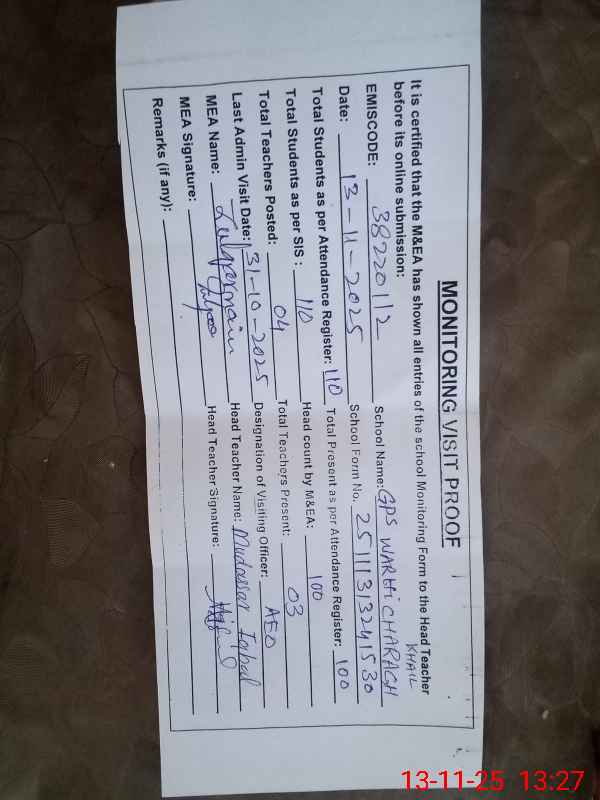 MONITORING VISIT PROOF
It is certified that the M&EA has shown all entries of the school Monitoring Form to the Head Teacher
before its online submission:
KHAIL
EMISCODE: 38220112 School Name: GPS WARHI CHARAGH
Date: 13-11-2025 School Form No. 25111313241530
Total Students as per Attendance Register: 110 Total Present as per Attendance Register: 100
Total Students as per SIS : 110 Head count by M&EA: 100
Total Teachers Posted: 04 Total Teachers Present: 03
Last Admin Visit Date: 31-10-2025 Designation of Visiting Officer: AEO
MEA Name: Head Teacher Name: Mudassar Iqbal
MEA Signature: Head Teacher Signature:
Remarks (if any):
13-11-25 13:27